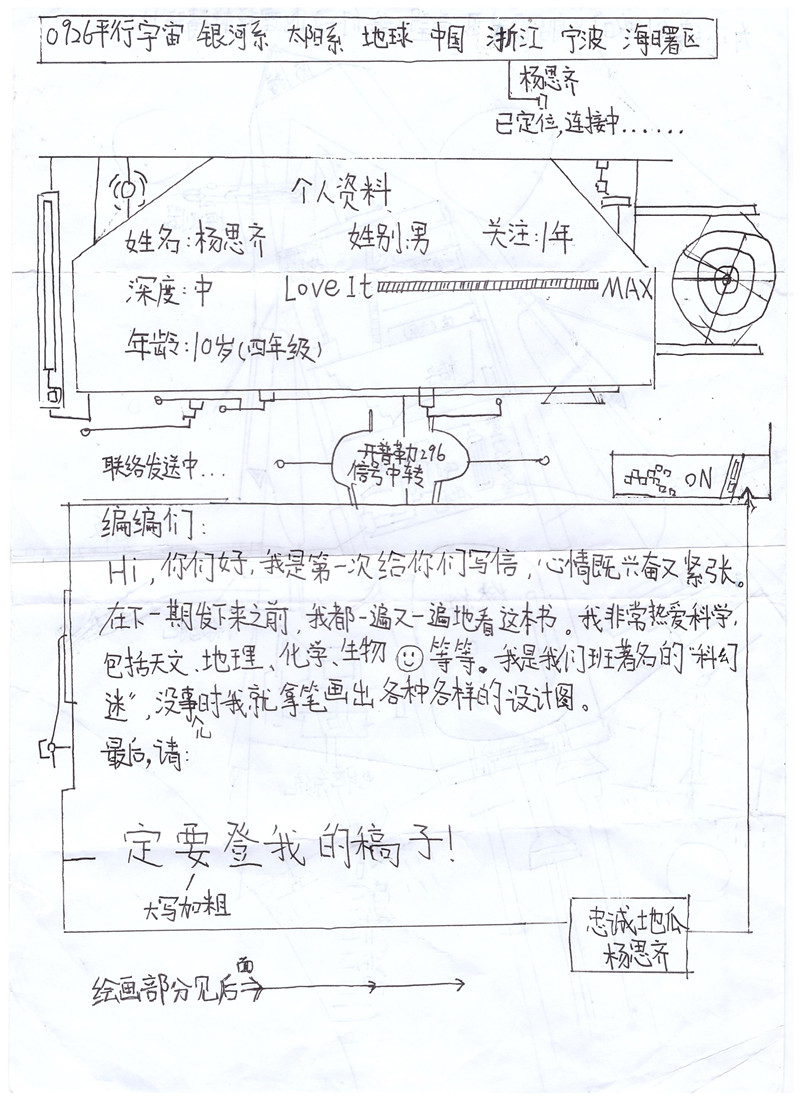 0926平行宇宙 银河系 太阳系 地球 中国 浙江 宁波 海曙区
杨思齐
已定位,连接中......
个人资料
姓名:杨思齐 姓别:男 关注:1年
深度:中 Love It MAX
年龄:10岁(四年级)
联络发送中...
开普勒296
信号中转
ON
编编们:
Hi,你们好,我是第一次给你们写信,心情既兴奋又紧张。
在下一期发下来之前,我都一遍又一遍地看这本书。我非常热爱科学,
包括天文、地理、化学、生物☺等等。我是我们班著名的“科幻
迷”,没事儿时我就拿笔画出各种各样的设计图。
最后,请:
一定要登我的稿子!
大写加粗
忠诚地瓜
杨思齐
绘画部分见后面